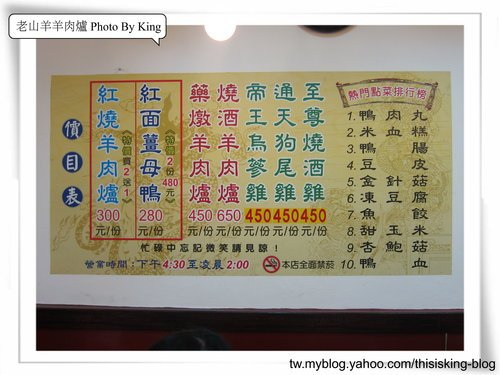 老山羊羊肉爐 Photo By King
價目表
紅燒羊肉爐
《特價買2送1》
300
元/份
紅面薑母鴨
《特價2份480元》
280
元/份
藥燉羊肉爐
450
元/份
燒酒羊肉爐
650
元/份
帝王烏蔘雞
450
元/份
通天狗尾雞
450
元/份
至尊燒酒雞
450
元/份
忙碌中忘記微笑請見諒！
營業時間：下午4:30至凌晨2:00
本店全面禁菸
熱門點菜排行榜
1. 鴨肉丸
2. 米血糕
3. 鴨腸
4. 豆皮
5. 金針菇
6. 凍豆腐
7. 魚餃
8. 甜玉米
9. 杏鮑菇
10. 鴨血
tw.myblog.yahoo.com/thisisking-blog